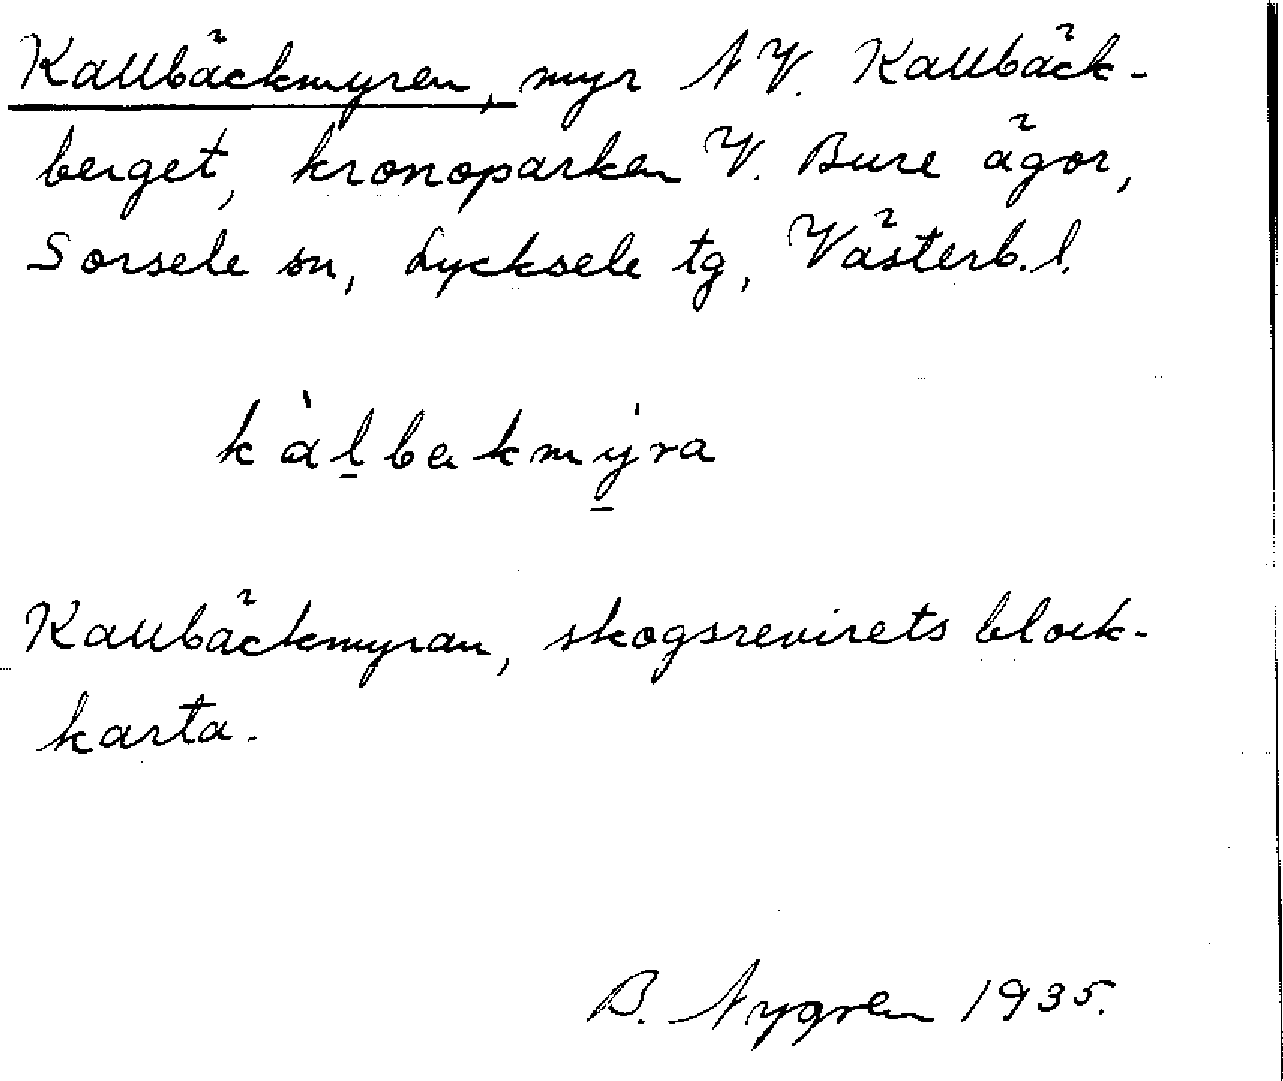 Kallbäckmyren, myr N V. Kallbäck-
berget, kronoparken V. Bure ägor,
Sorsele sn, Lycksele tg, Västerb. l.
kàl̠bakmy̠̍ra
Kallbäckmyran, skogsrevirets block-
karta.
B. Nygren 1935.